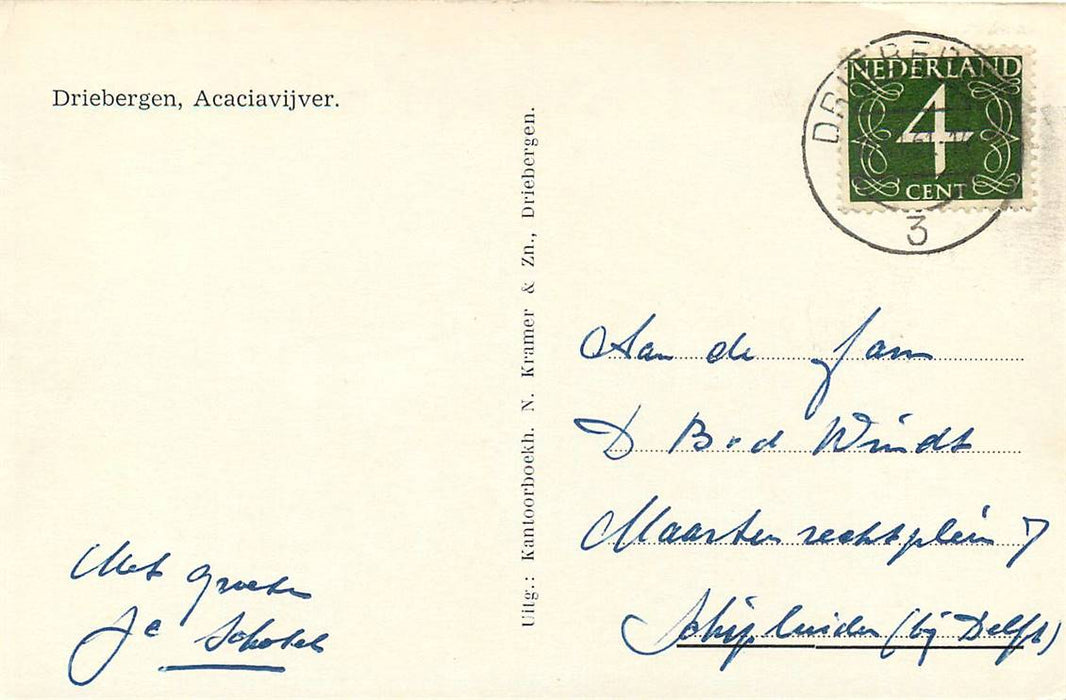 Driebergen, Acaciavijver.
Uitg.: Kantoorboekh. N. Kramer & Zn., Driebergen.
NEDERLAND
4
CENT
3
Aan de fam
D Bod Windt
Maartenrechtplein 7
Schipluiden (bij Delft)
Met groeten
Jc